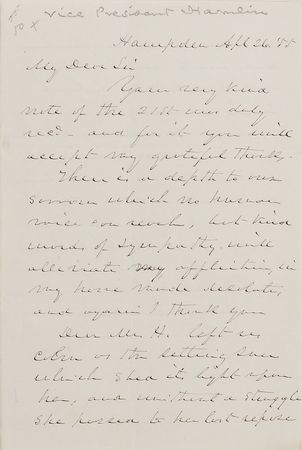 Vice President Hamlin
Hampden Apl 26, '55
My Dear Sir
Your very kind
note of the 21st was duly
rec'd - and for it you will
accept my grateful thanks.
There is a depth to our
sorrow which no human
voice can reach, but kind
words of sympathy will
alleviate my affliction, in
my home made desolate,
and again I thank you
Dear Mrs. H. left us
calm as the setting sun
which shed its light upon
her, and without a struggle
she passed to her last repose